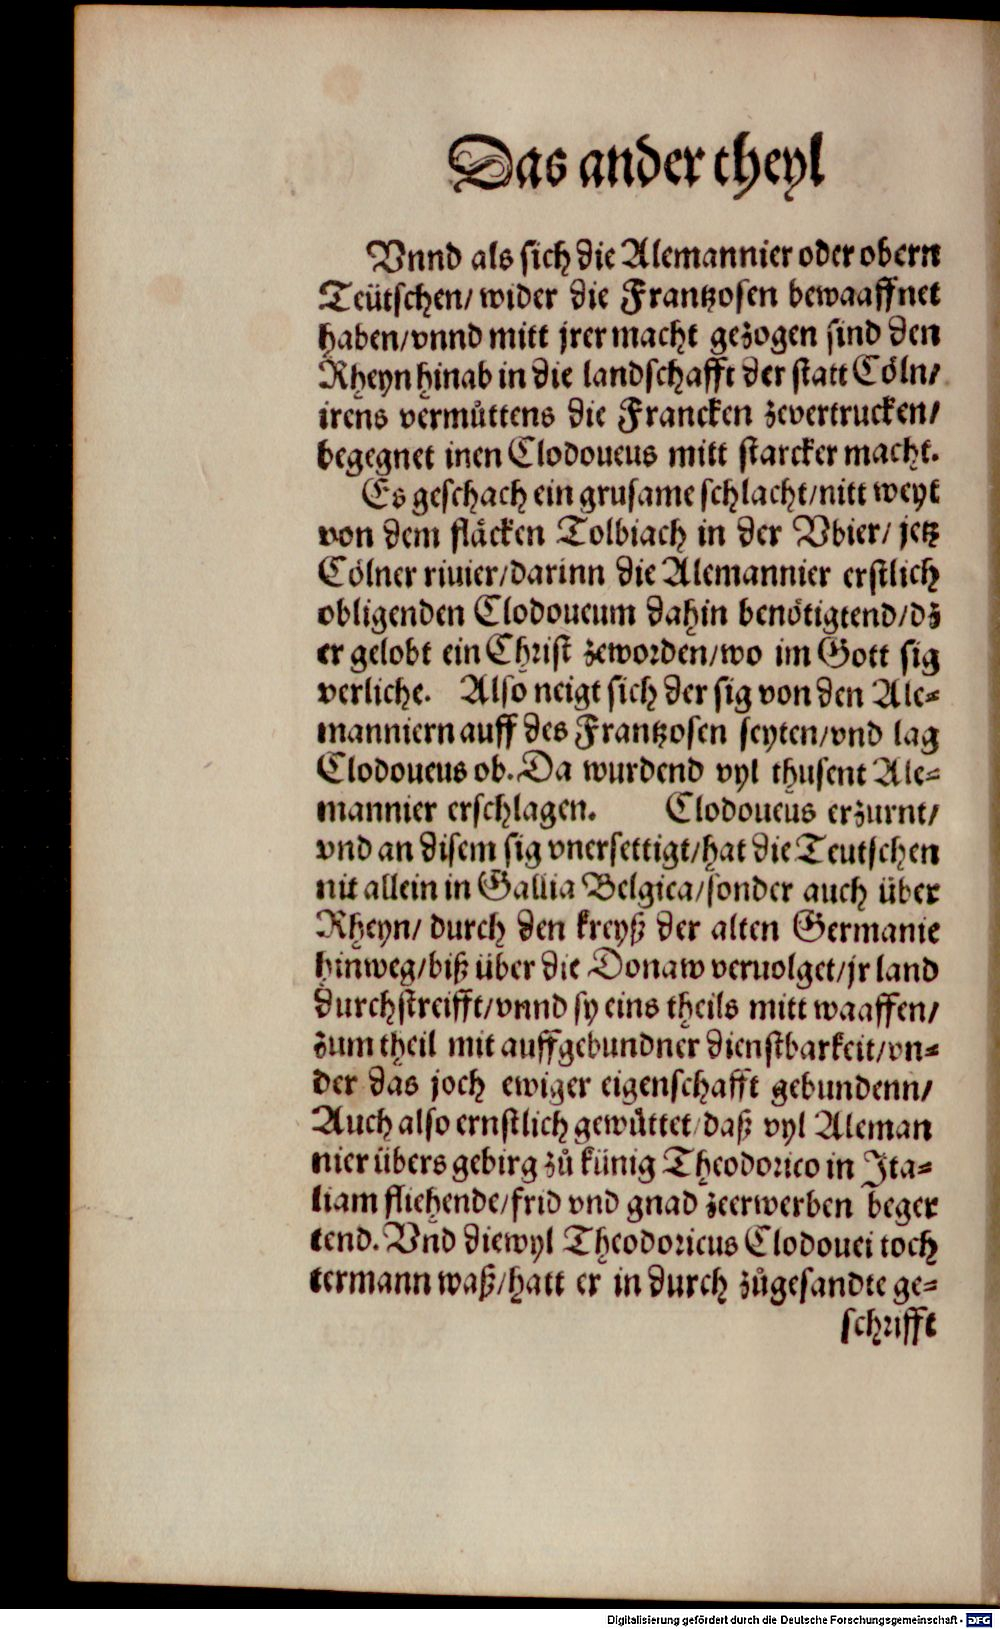 Das ander theyl
Vnnd als sich die Alemannier oder obern
Teütschen/ wider die Frantzosen bewaaffnet
haben/vnnd mitt jrer macht gezogen sind den
Rheyn hinab in die landschafft der statt Cöln/
irens vermůttens die Francken zevertrucken/
begegnet inen Clodoueus mitt starcker macht.
Es geschach ein grusame schlacht/nitt weyt
von dem fläcken Tolbiach in der Vbier/ jetz
Cölner riuier/darinn die Alemannier erstlich
obligenden Clodoueum dahin benötigtend/dz
er gelobt ein Christ zeworden/wo im Gott sig
verliche. Also neigt sich der sig von den Ale-
manniern auff des Frantzosen seyten/vnd lag
Clodoueus ob. Da wurdend vyl thusent Ale-
mannier erschlagen. Clodoueus erzurnt/
vnd an disem sig vnersettigt/hat die Teutschen
nit allein in Gallia Belgica/sonder auch über
Rheyn/ durch den kreyß der alten Germanie
hinweg/biß über die Donaw veruolget/jr land
durchstreifft/vnnd sy eins theils mitt waaffen/
zum theil mit auffgebundner dienstbarkeit/vn-
der das joch ewiger eigenschafft gebundenn/
Auch also ernstlich gewůttet/daß vyl Aleman
nier übers gebirg zů künig Theodorico in Ita-
liam fliehende/frid vnd gnad zeerwerben beger
tend. Vnd diewyl Theodoricus Clodouei toch
termann waß/hatt er in durch zůgesandte ge-
schrifft
Digitalisierung gefördert durch die Deutsche Forschungsgemeinschaft - DFG